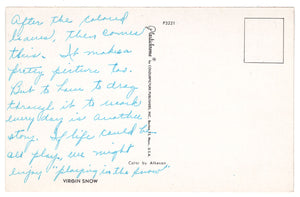 After the colored
leaves, then comes
this. It makes a
pretty picture too.
But to have to drag
through it to work
every day is another
story. If life could be
all play, we might
enjoy "playing in the snow"
VIRGIN SNOW
Plastichrome®
by COLOURPICTURE PUBLISHERS, INC., Boston, Mass., U.S.A.
Color by Atkeson
P3221